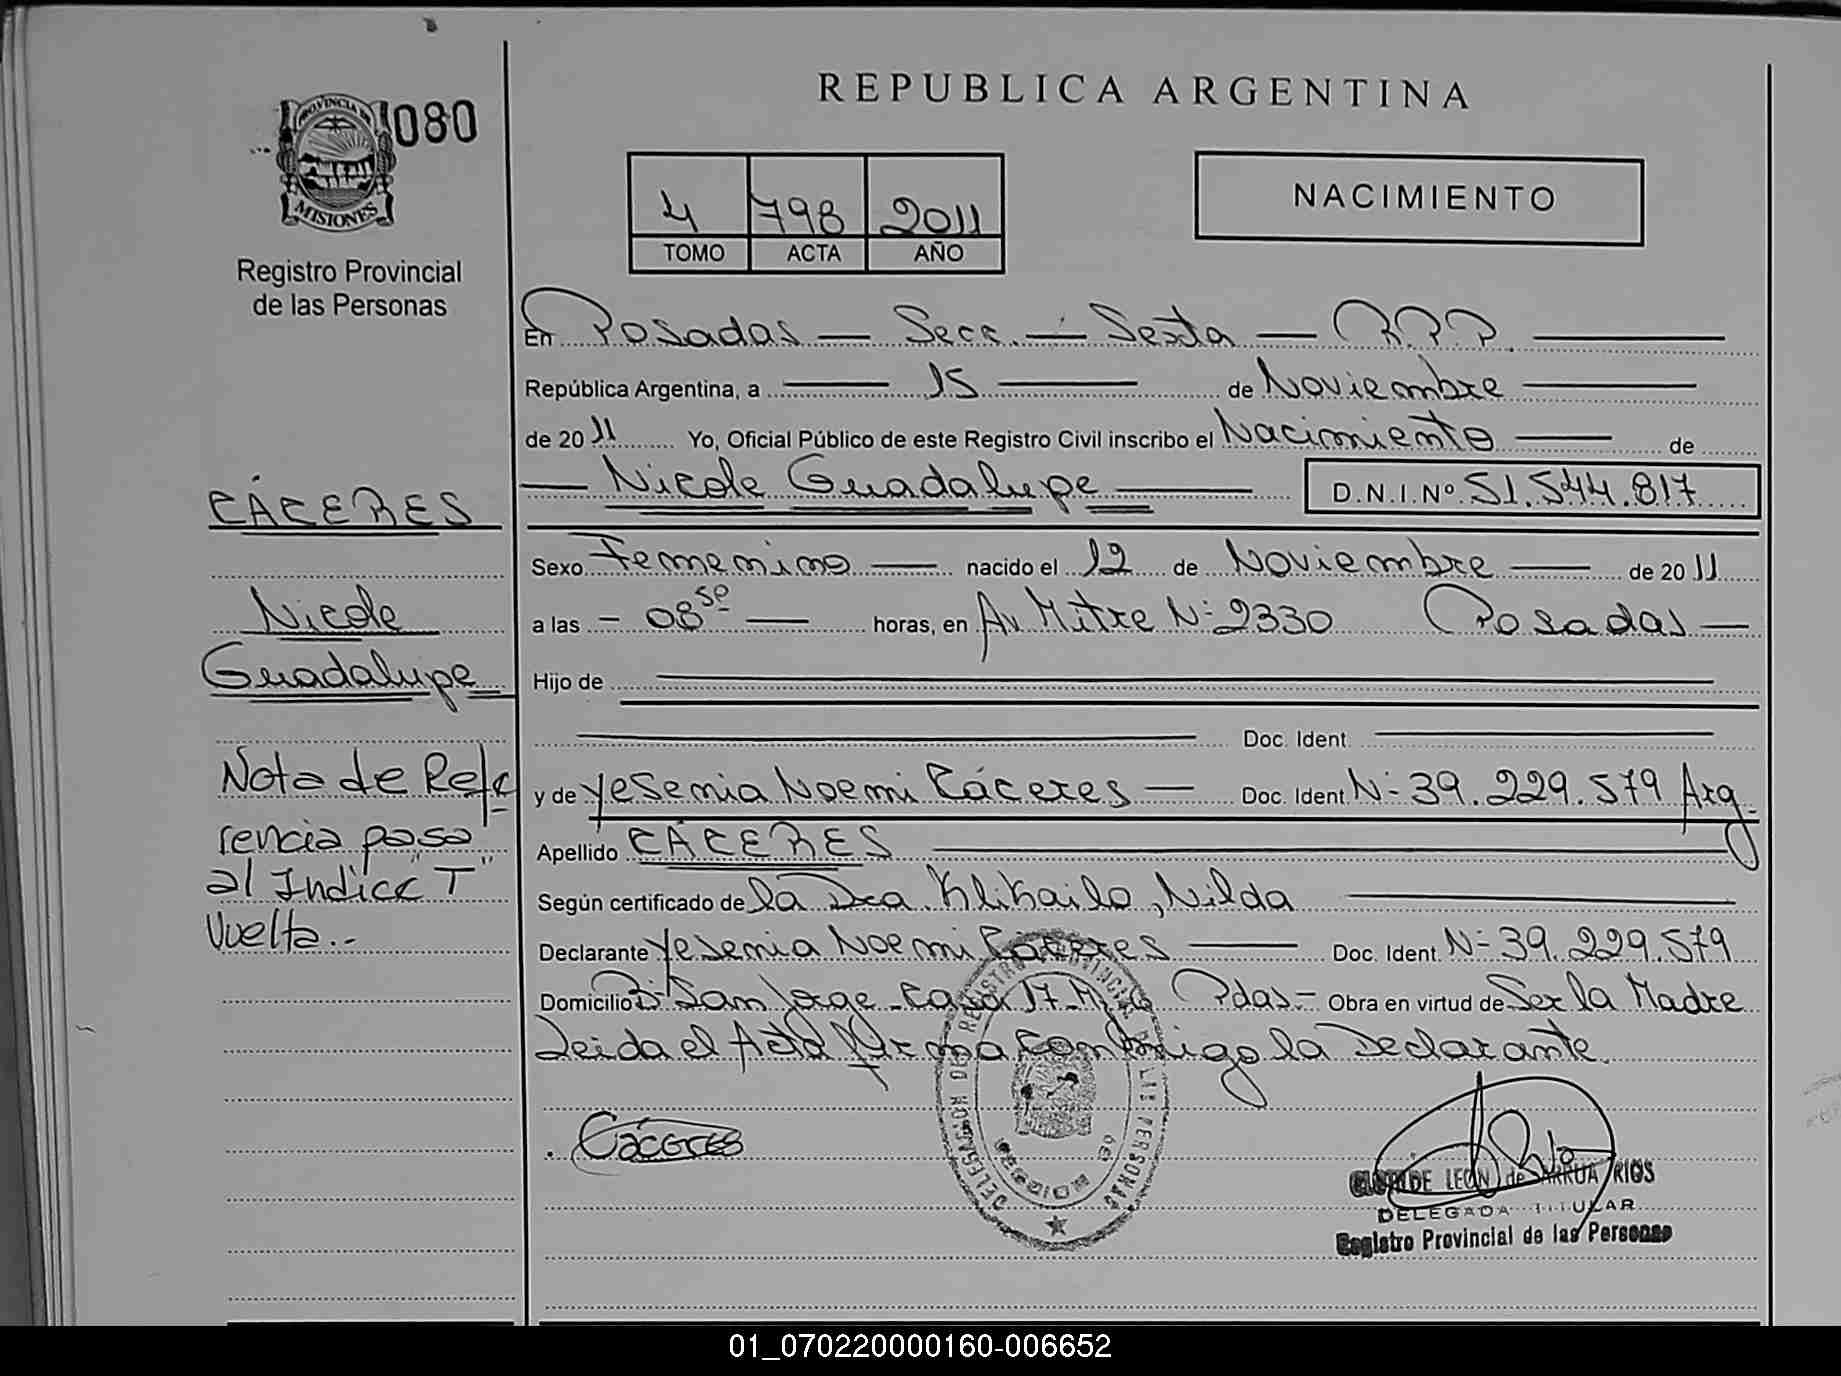 REPUBLICA ARGENTINA
PROVINCIA DE
MISIONES
080
Registro Provincial
de las Personas
4 798 2011
TOMO ACTA AÑO
NACIMIENTO
En Posadas — Secc. — Sexta — R.P.P.
República Argentina, a — 15 — de Noviembre
de 2011 Yo, Oficial Público de este Registro Civil inscribo el Nacimiento — de
— Nicole Guadalupe — D.N.I.Nº 51.544.817
Sexo Femenino — nacido el 12 de Noviembre — de 2011
a las - 08 — horas, en Av Mitre Nº 2330 Posadas —
Hijo de
Doc. Ident.
y de Yesenia Noemi Cáceres — Doc. Ident Nº 39.229.579 Arg.
Apellido CÁCERES
Según certificado de la Dra. Klikailo, Nilda
Declarante Yesenia Noemi Cáceres — Doc. Ident. Nº 39.229.579
Domicilio Bº San Jorge Casa 17 Pdas.- Obra en virtud de Ser la Madre
Leida el Acta firma conmigo la Declarante.
CÁCERES
Nicole
Guadalupe
Nota de Refe
rencia pasa
al Indice "T"
Vuelta..-
Cáceres
DELEGACION DEL REGISTRO PROVINCIAL DE LAS PERSONAS
LEON de ARRUA RIOS
DELEGADA TITULAR
Registro Provincial de las Personas
01_070220000160-006652